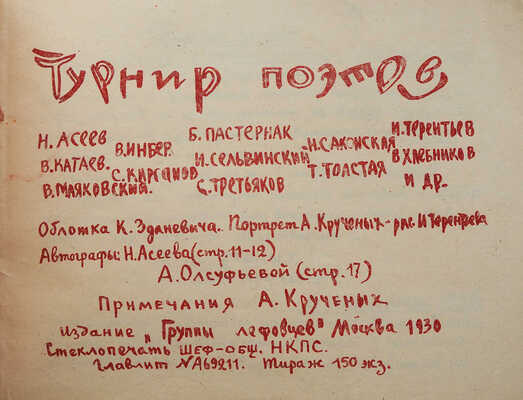 Турнир поэтов
Н. Асеев Б. Пастернак И. Терентьев
В. Катаев. В. Инбер. И. Сельвинский Н. Саконская В. Хлебников
В. Маяковский. С. Кирсанов С. Третьяков Т. Толстая и др.
Обложка К. Зданевича. Портрет А. Крученых - рис. И Терентьева
Автографы: Н. Асеева (стр. 11-12)
А. Олсуфьевой (стр. 17)
Примечания А. Крученых
издание „Группы лефовцев" Москва 1930
Стеклопечать ШЕФ-ОБЩ. НКПС.
Главлит № А69211. Тираж 150 жз.